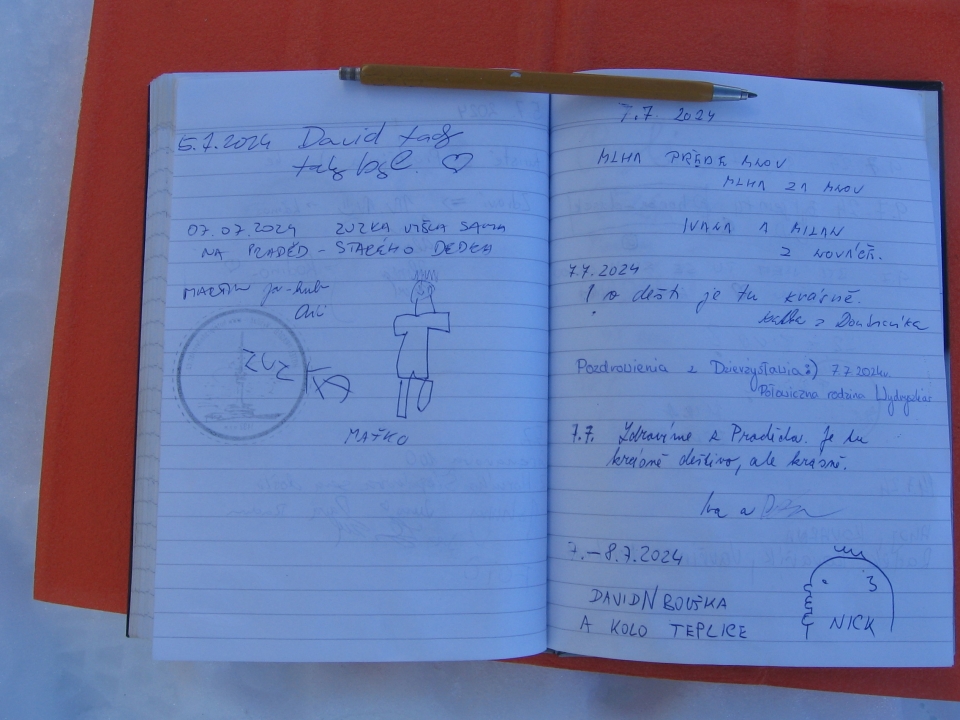 5.7.2024 David tady
taky byl. ♡
07.07.2024 ZUZKA VYŠLA SAMA
NA PRADĚD - STARÉHO DĚDKA
MARTIN
ZUZ
MAŤKO
7.7. 2024
MLHA PŘEDE MNOV
MLHA ZA MNOV
IVANA A MILAN
Z NOVIČÍ.
7.7.2024
I v dešti je tu krásně.
z Dominika
Pozdrowienia z Dzierżysławia:) 7.7.2024r.
Połowiczna rodzina
7.7. Zdravíme z Praděda. Je tu
krásně deštivo, ale krásně.
Iva a
7.-8.7.2024
DAVID N BOUŠKA
A KOLO TEPLICE
NICK